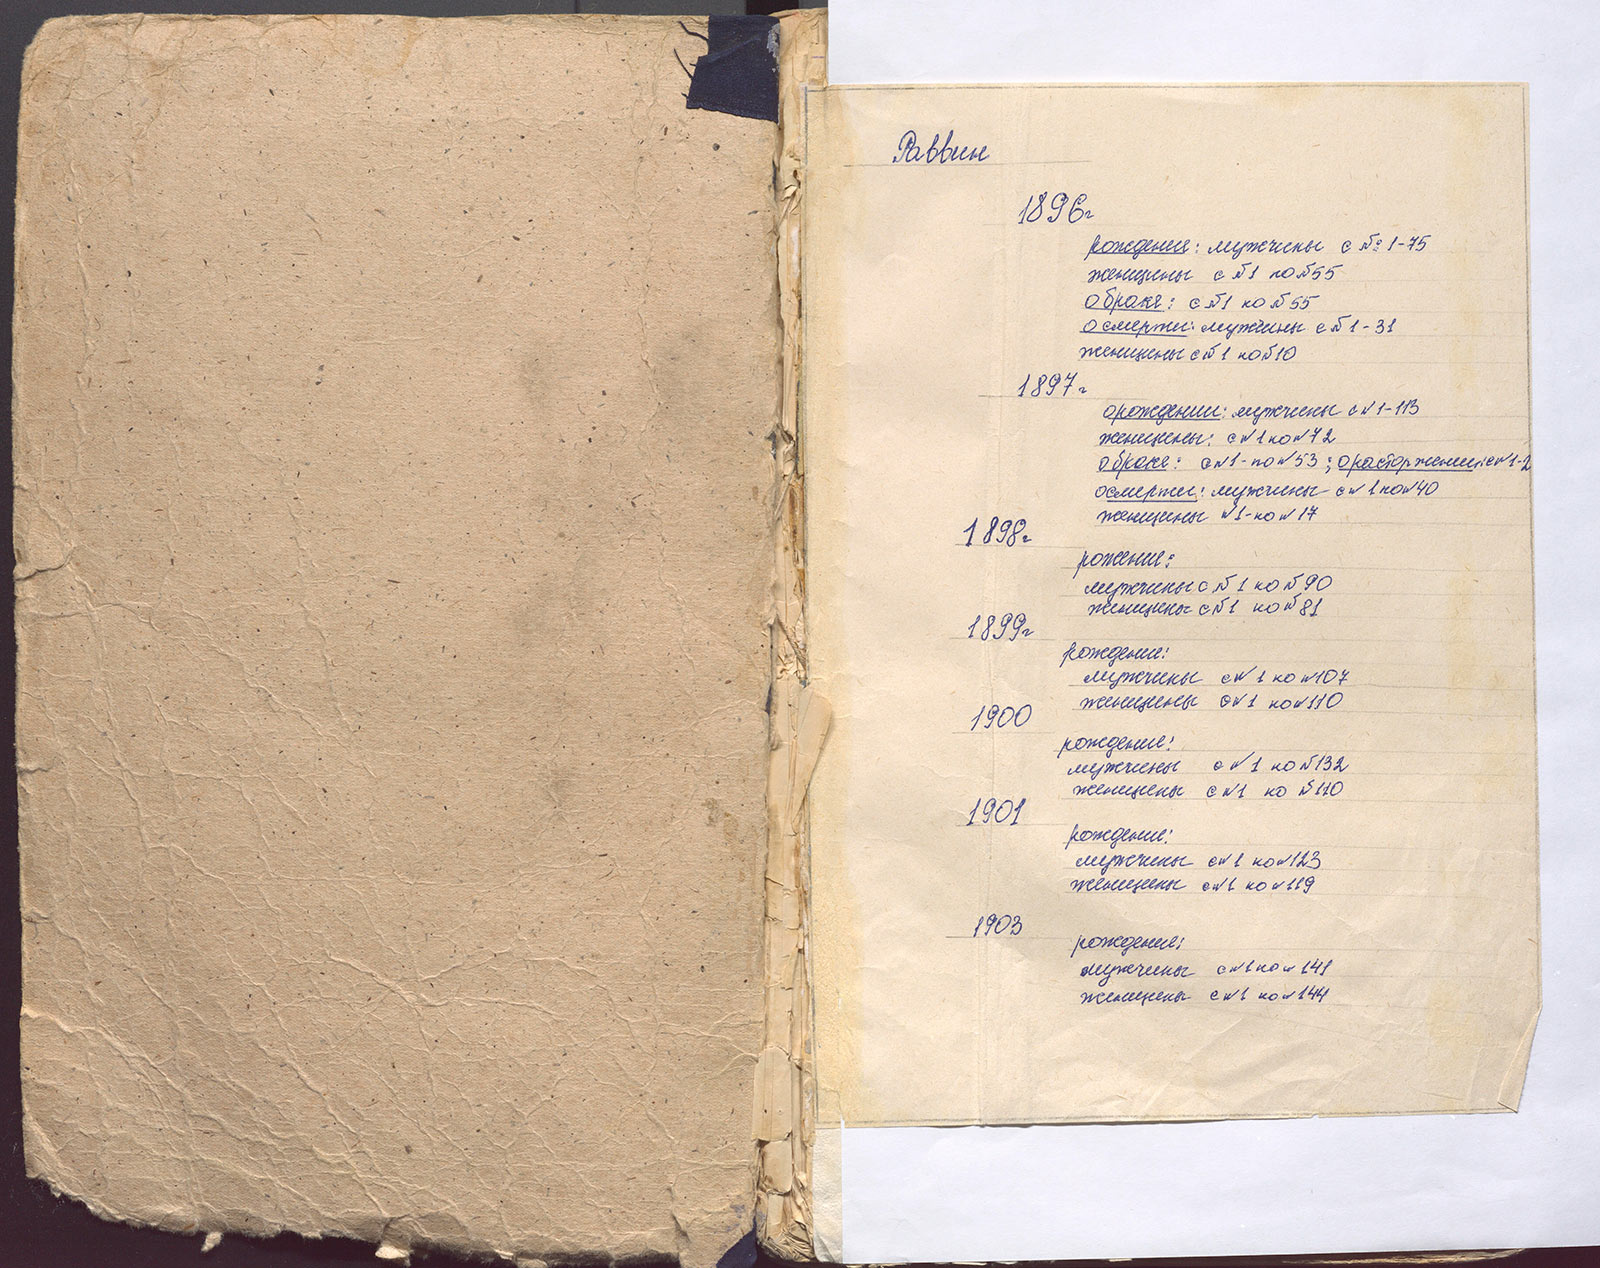 Раввин
1896г
рождение: мужчины с №1-75
женщины с №1 по №55
о браке: с №1 по №55
о смерти: мужчины с №1-31
женщины с №1 по №10
1897г
о рождении: мужчины с №1-113
женщины: с №1 по №72
о браке: с №1- по №53; о расторжении: с №1-2
о смерти: мужчины с №1 по №40
женщины №1- по №17
1898г
рожение:
мужчины с №1 по №90
женщины с №1 по №81
1899г
рождение:
мужчины с №1 по №107
женщины с №1 по №110
1900
рождение:
мужчины с №1 по №132
женщины с №1 по №110
1901
рождение:
мужчины с №1 по №123
женщины с №1 по №119
1903
рождение:
мужчины с №1 по №141
женщины с №1 по №144